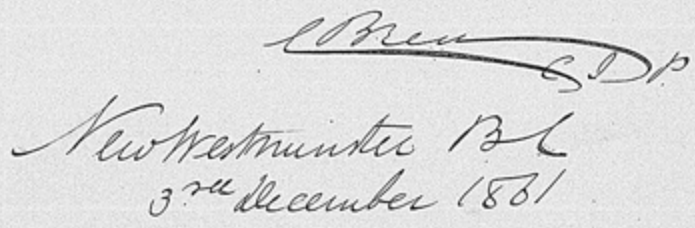 C Brew
C I P.
New Westminster B C
3rd December 1861